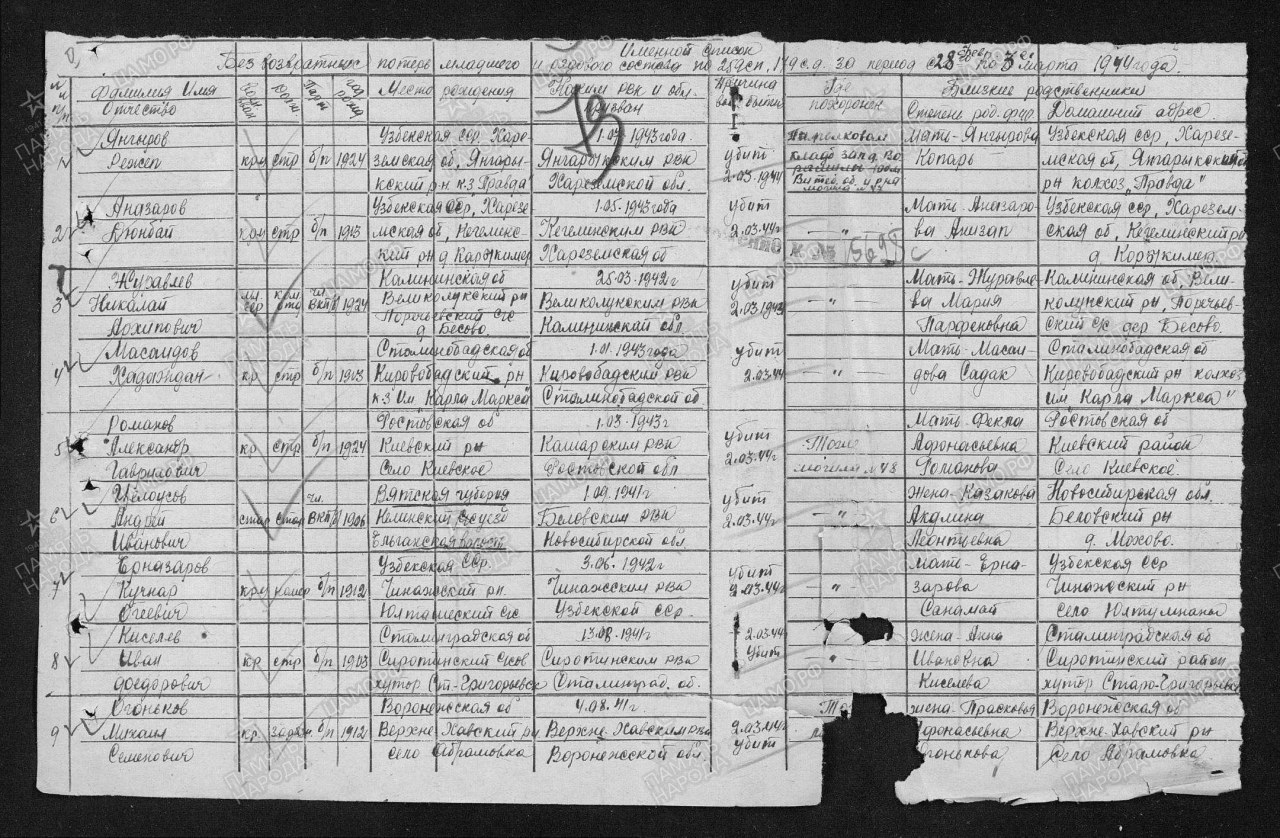 Именной список
Безвозвратных потерь младшего и рядового состава по 259 с.п. 179 с.д. за период с 28 фев. по 3 марта 1944 года.
№ п/п Фамилия Имя Отчество Парт год рожд Место рождения Каким РВК и обл. призван Причина выбытия Где похоронен Близкие родственники
Степень род. фир. Домашний адрес
Янгыров Узбекская сср, Харе- 1.03.1943 года На полковом Мать-Янгырова Узбекская сср, Харезе-
1 Режеп кр стр б/п 1924 земская об, Янгары- Янгарыкским рвк убит кладб. зап.д. Во Копарь мская об, Янгарыкский
кский р-н к-з "Правда" Хареземской обл. 2.03.1944 Витеб. об. рн колхоз "Правда"
Аназаров Узбекская сср, Харезе- 1.05.1943 года убит Мать-Аназаро- Узбекская сср, Харезем-
2 Дюнбай кр стр б/п 1913 мская об, Кегелинс- Кегелинским рвк 2.03.1944 -"- ва Анизап ская об, Кегелинский рн
кий рн д. Карыкилер Хареземская об д. Корыкилер
Журавлев Калининская об 25.03.1942 г убит Мать-Журавле- Калининская об. Вели-
3 Николай мл. сер ком. отд чл. ВКП/б 1924 Великолукский рн Великолукским рвк 2.03.1943 -"- ва Мария колукский рн, Поречьев-
Архипович Поречевский с/с д. Бесово. Калининской обл Парфеновна ский с/с дер Бесово.
Масаидов Сталинобадская об 1.01.1943 года убит Мать-Масаи- Сталинобадская об
4 Хадойдан кр стр б/п 1913 Кировобадский рн Кировобадский рвк 2.03.44 -"- дова Садак Кировобадский рн колхоз
к-з Им. "Карла Маркса" Сталинобадской об. им Карла Маркса"
Романов Ростовская об 1.03.1943 г Мать-Фекла Ростовская об
5 Александр кр стр б/п 1924 Киевский рн Кашарским рвк убит -Тоже- Афонасьевна Киевский район
Гаврилович Село Киевское Ростовской обл 2.03.44 г могила № 48 Романова Село Киевское
Белоусов чл. Вятская губерня 1.09.1941 г убит жена-Казакова Новосибирская обл.
6 Андрей стар стар ВКП/б 1906 Беловским рвк 2.03.44 г -"- Акулина Беловский рн
Иванович Новосибирской обл Леонтьевна д. Мохово.
Ерназаров Узбекская сср. 3.06.1942 г Мать-Ерна- Узбекская сср
7 Кучнар кр б/п 1912 Чиназский рн. Чиназским рвк убит 2.03.44 г -"- зарова Чиназский рн
Юлташеский с/с Узбекской сср. Санамай село Юлтумпана
Киселев Сталинградская об 13.08.1941 г 2.03.44 г жена-Анна Сталинградская об
8 Иван кр. стр. б/п 1903 Сиротинский Сиротинским рвк убит -"- Ивановна Сиротинский район
Федорович хутор Ст-Григорьевск Сталинград. об. Киселева хутор Старо-Григоревск
Огоньков Воронежская об 4.08.41 г. То жена-Прасковья Воронежская об
9 Михаил кр. б/п 1912 Верхне-Хавский рн Верхне-Хавским рвк 2.03.44 г фонасьевна Верхне-Хавский рн
Семенович село Абрамовка Воронежской обл убит гонькова Село Абрамовка